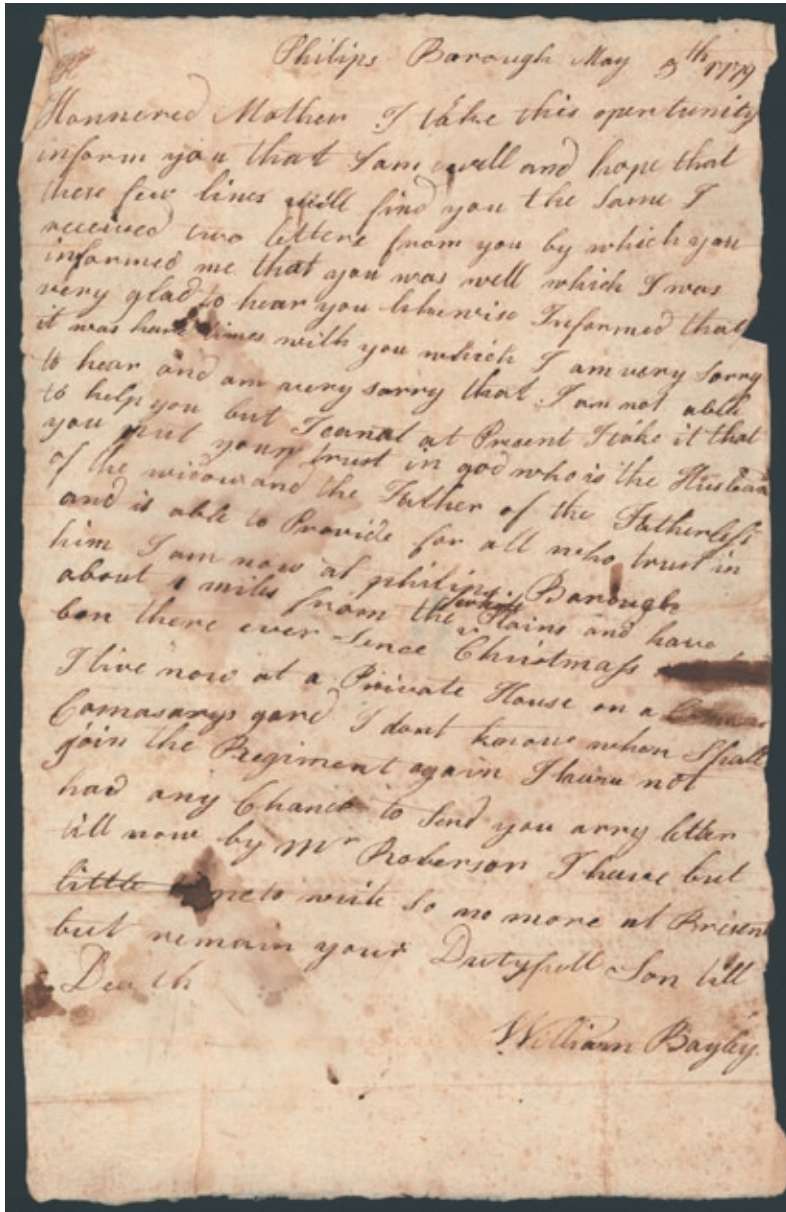 Philips Borough May 5th 1779
Honnered Mother I take this opertunity
inform you that I am well and hope that
these few lines will find you the same I
received two letters from you by which you
informed me that you was well which I was
very glad to hear you likewise Informed that
it was hard times with you which I am very sorry
to hear and am very sorry that I am not able
to help you but I canat at Present I take it that
you put your trust in god who is the Husban
of the widow and the Father of the Fatherless
and is able to Provide for all who trust in
him I am now at philips Borough
about miles from the white Plains and have
ben there ever Sence Christmass
I live now at a Private House on a
Comasarys gard I dont know when Shall
join the Regiment again I have not
had any Chance to Send you arry letter
till now by Mr Roberson I have but
little to write so no more at Present
but remain your Dutyfull Son till
Death
William Bayley.